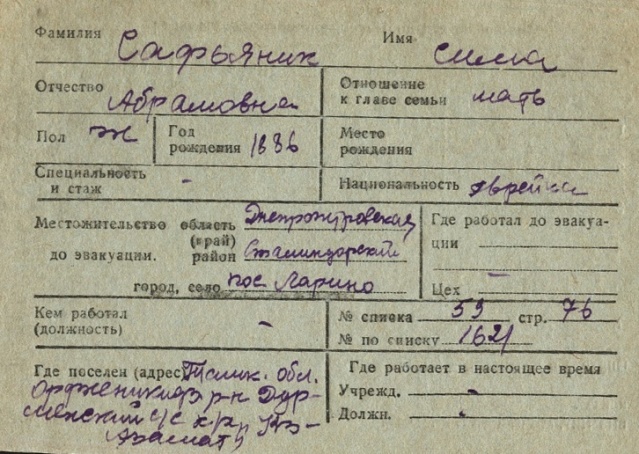 Фамилия Сафьяник Имя Сима
Отчество Абрамовна Отношение к главе семьи мать
Пол ж Год рождения 1886 Место рождения
Специальность и стаж - Национальность еврейка
Местожительство до эвакуации. область (край) Днепропетровская
район Сталиндорский
город, село пос Ларино
Где работал до эвакуации
Цех -
Кем работал (должность) -
№ списка 53 стр. 76
№ по списку 1621
Где поселен (адрес) Ташк. обл.
Орджоникидз р-н Дур-
менский с/с к/р
Азамат"
Где работает в настоящее время
Учрежд. -
Должн. -